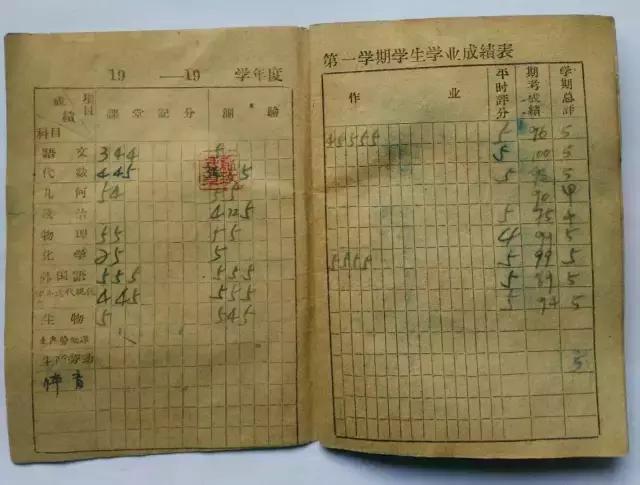 19 —19 学年度
成績 項目 課堂記分 測驗
科目
語文 3 4 4 5
代数 4 4 5 5
几何 5 4 5 5
政治 4 5
物理 5 5 5 5
化学 2 5 5
外国語 5 5 5 5 5 5
4 4 5 5 5 5
生物 5 5 4 5
生产劳动
体育
第一学期学生学业成績表
作业 平时評分 期考成績 学期总評
4 5 5 5 5 5 96 5
5 100 5
5 5
90 甲
5 95 4
4 99 5
5 5 5 5 5 99 5
5 89 5
5 94 5
5